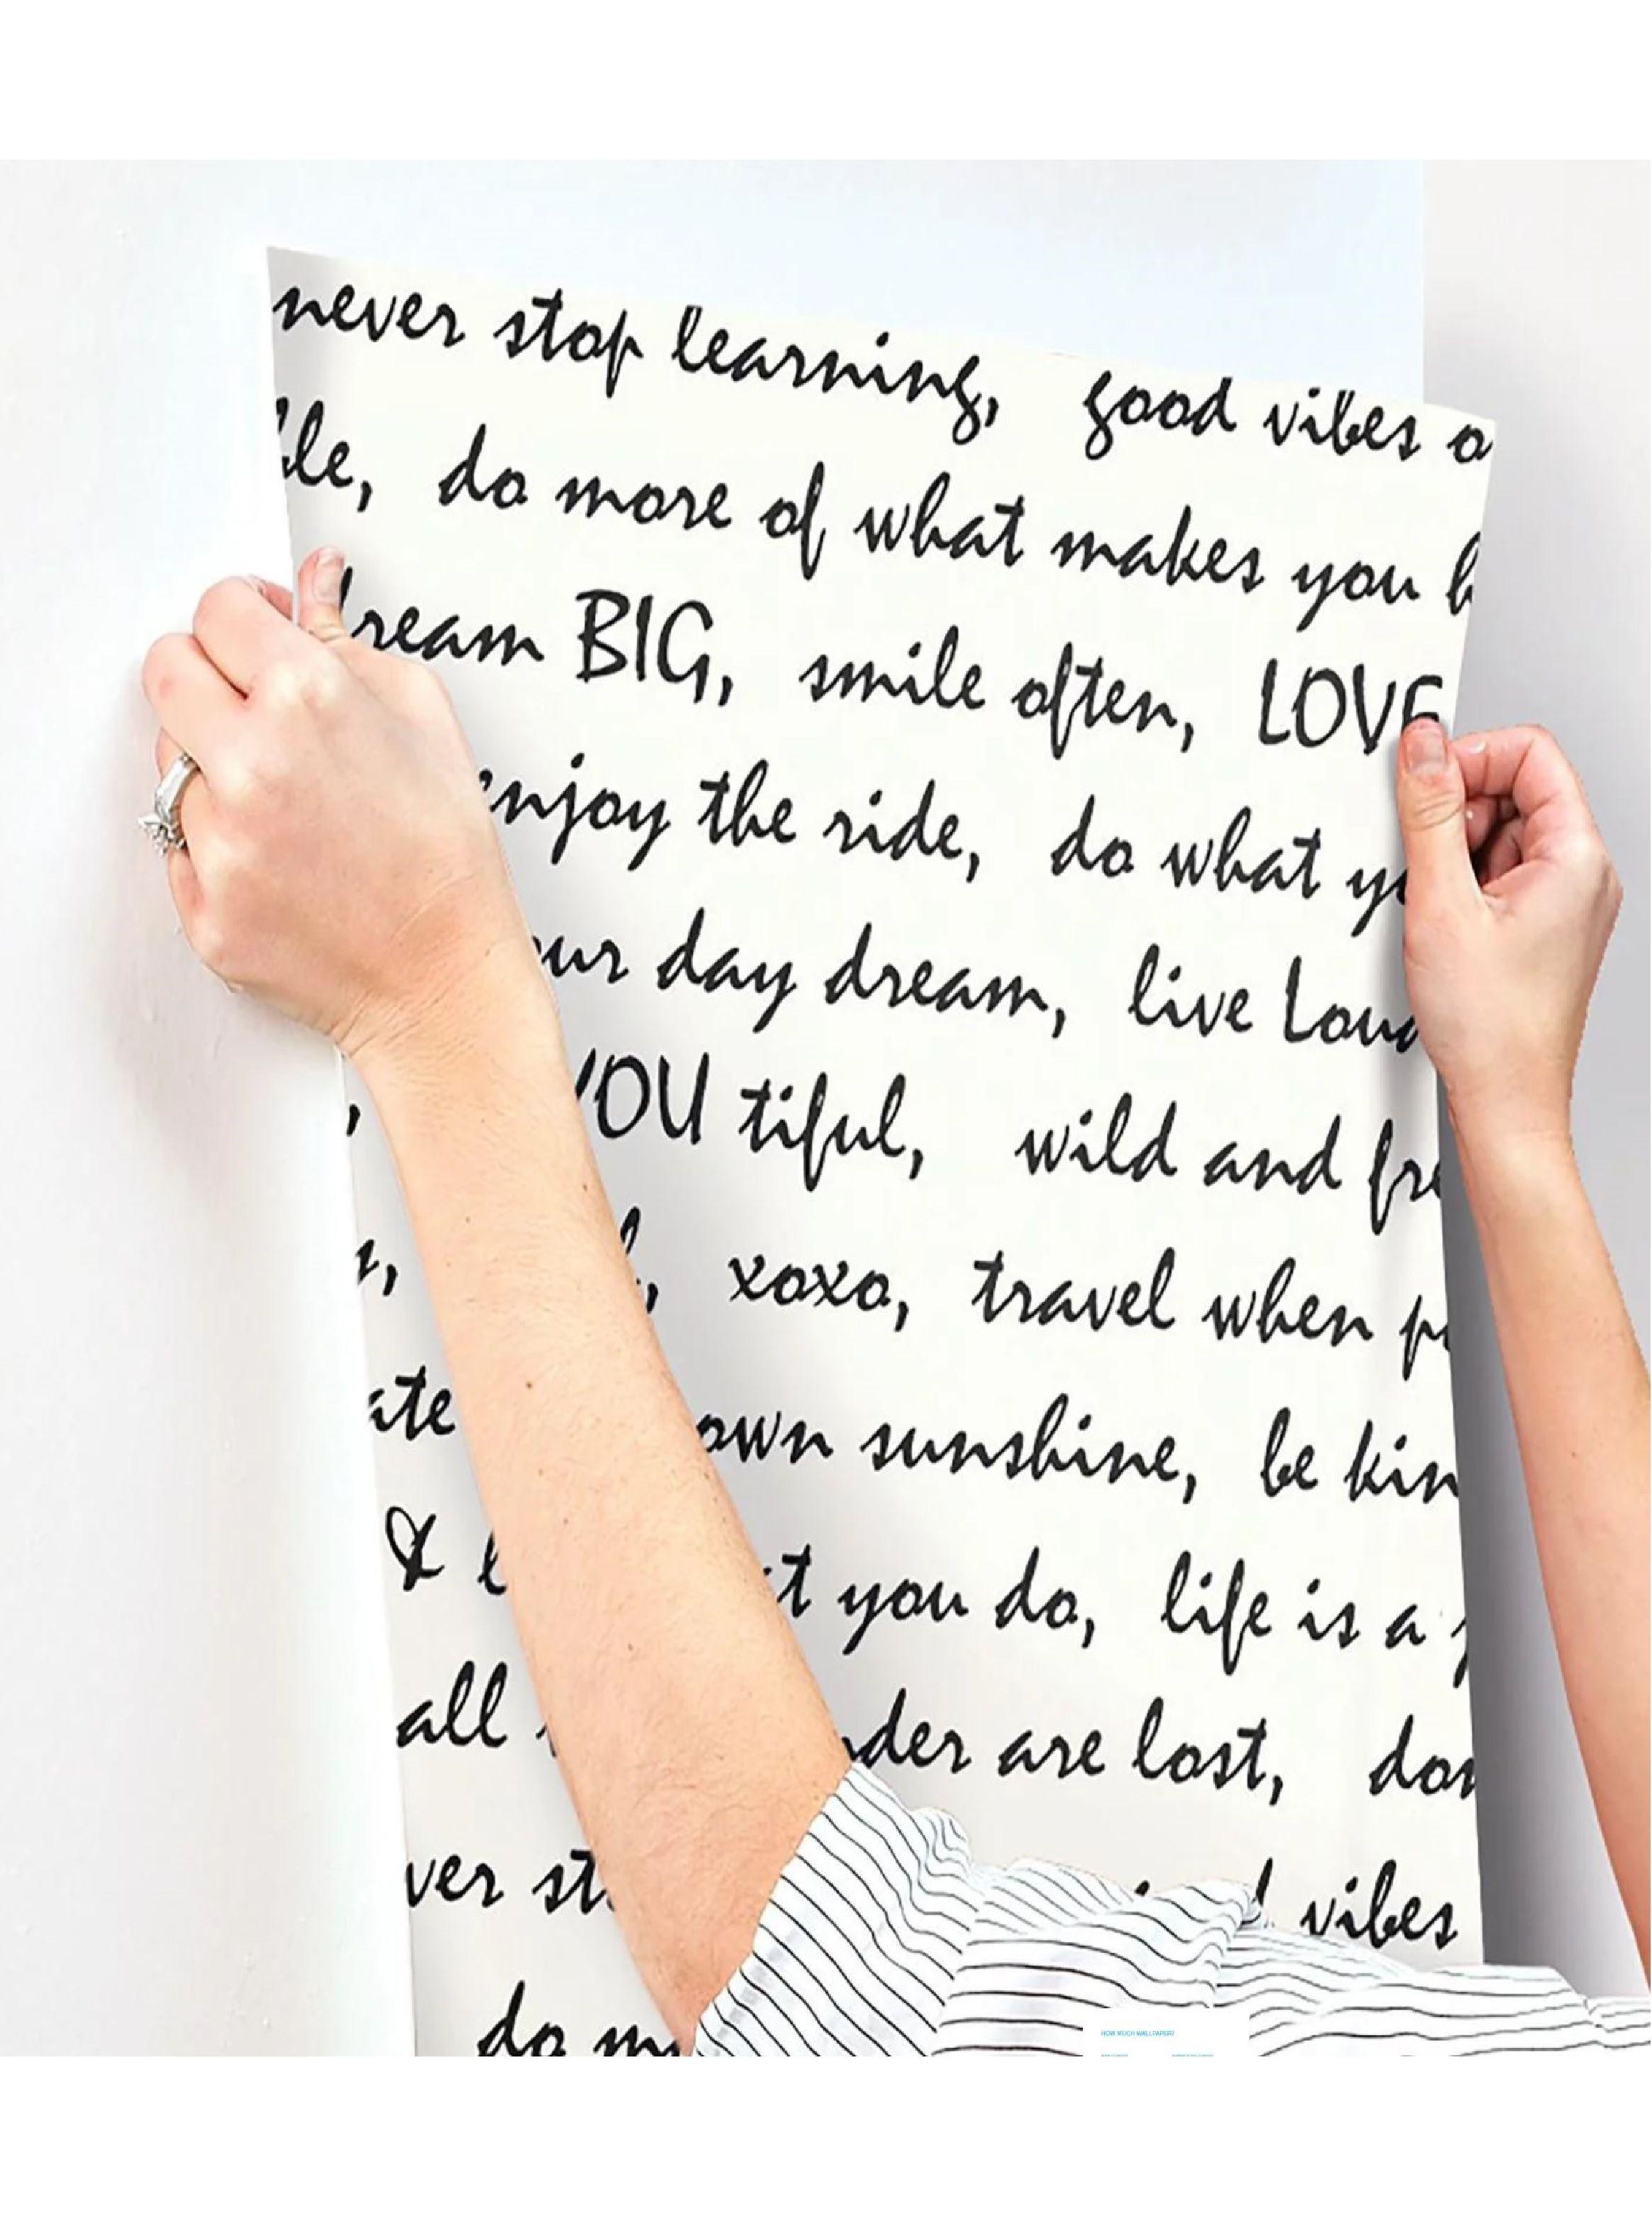 never stop learning, good vibes o
ble, do more of what makes you
dream BIG, smile often, LOVE
enjoy the ride, do what
our day dream, live Loud
YOU tiful, wild and
xoxo, travel when
own sunshine, be kin
& you do, life is a
all are lost,
vibes
do
HOW MUCH WALLPAPER?